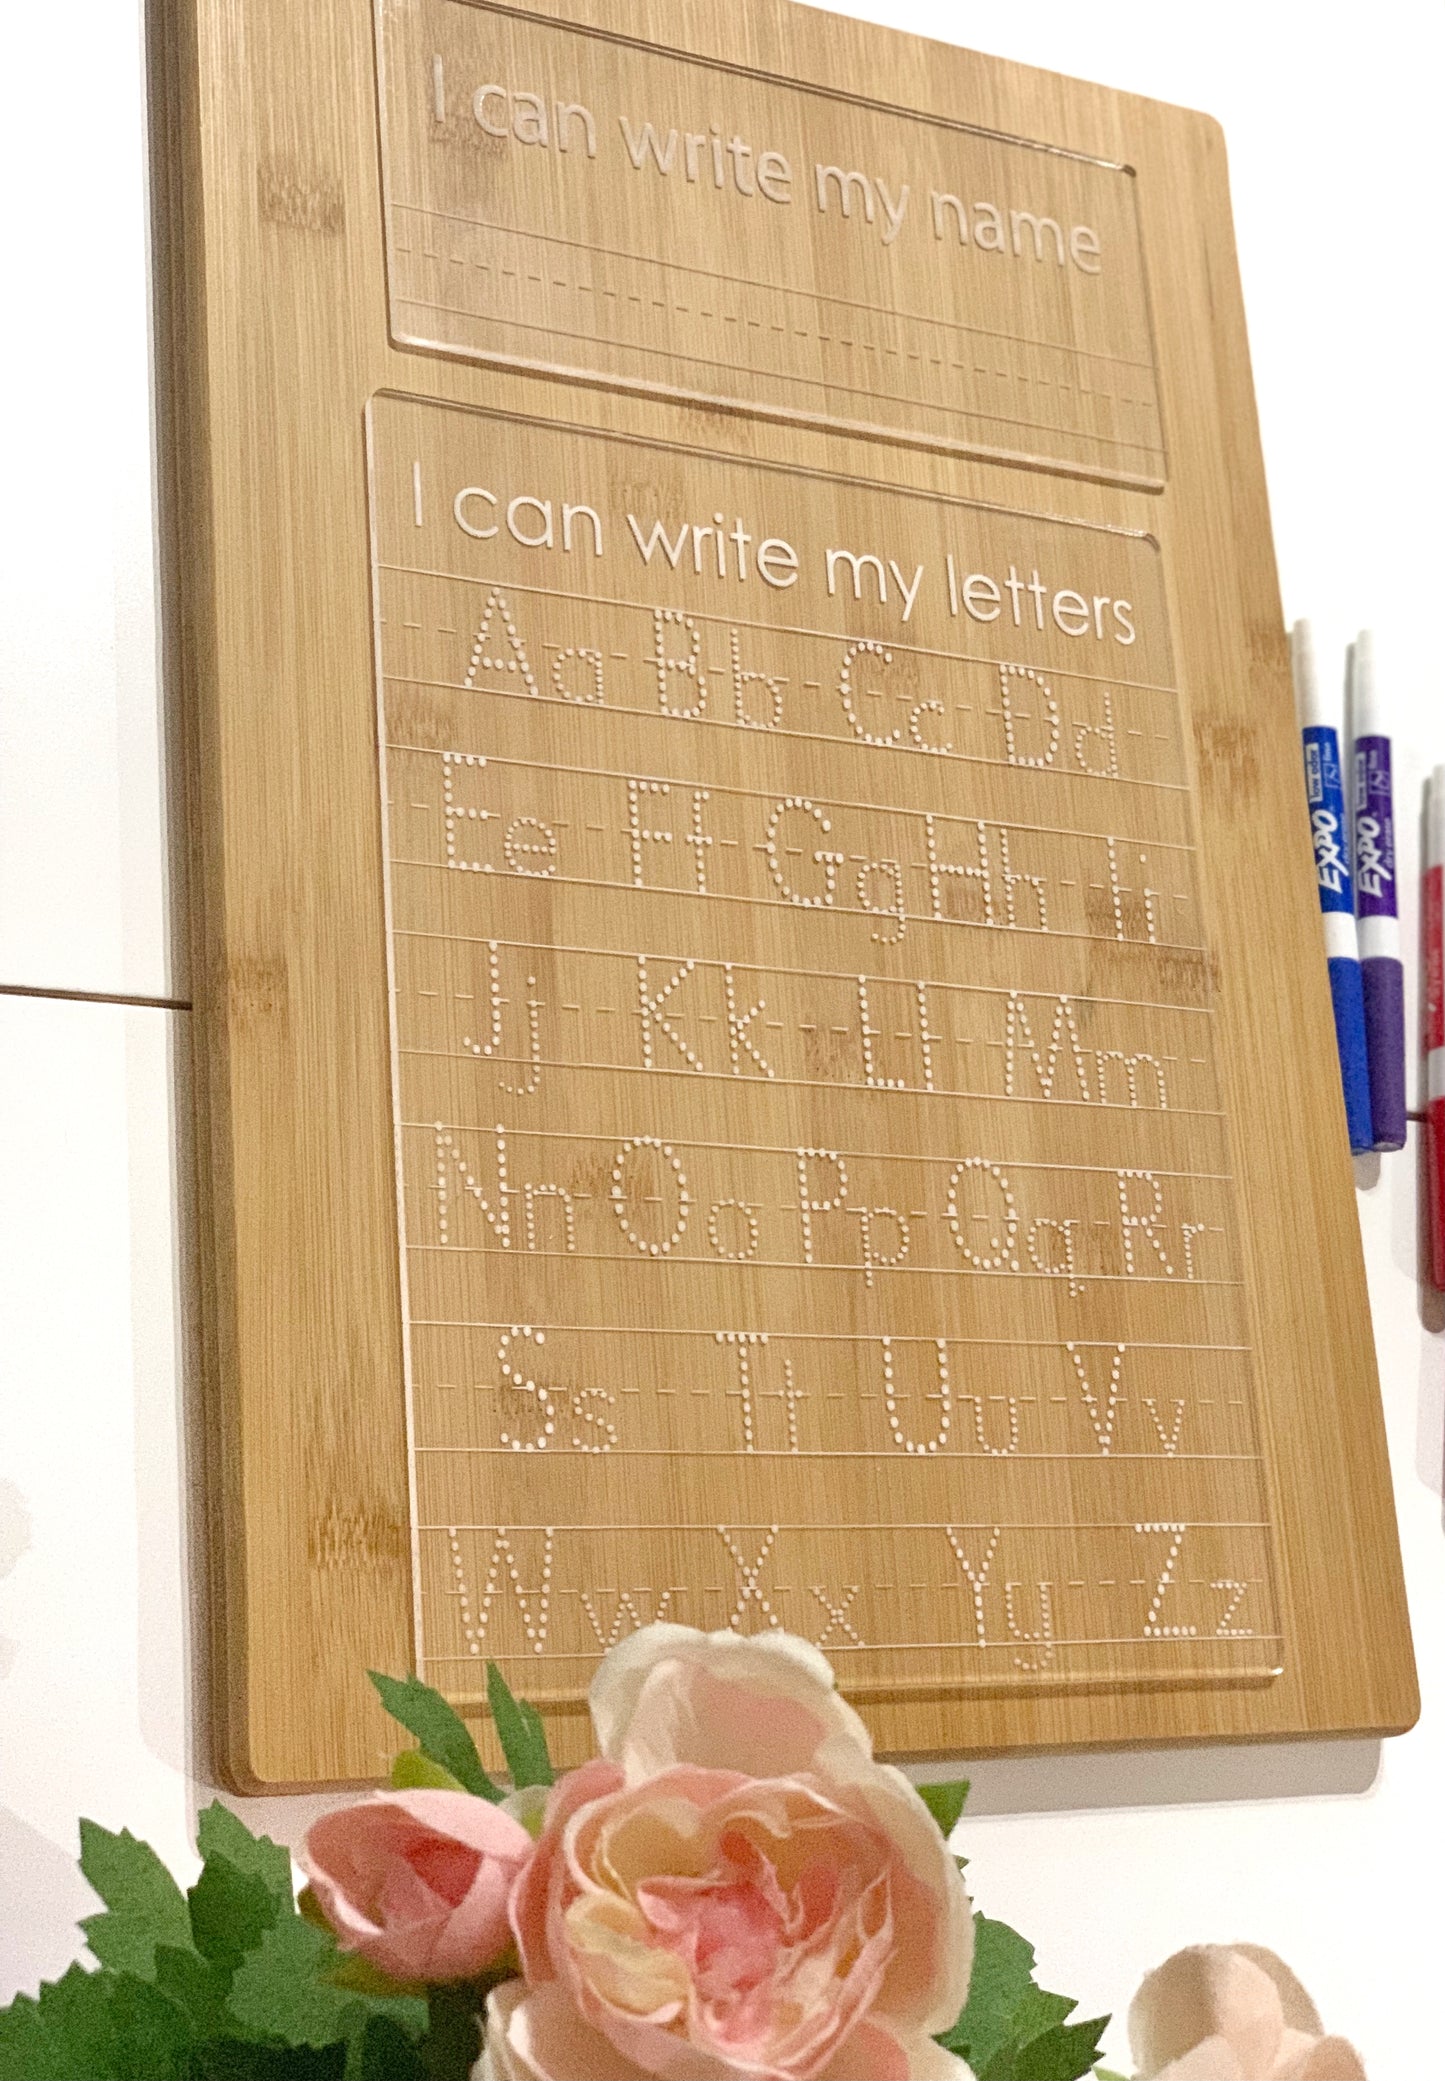 I can write my name
I can write my letters
Aa Bb Cc Dd
Ee Ff Gg Hh Ii
Jj Kk Ll Mm
Nn Oo Pp Qq Rr
Ss Tt Uu Vv
Ww Xx Yy Zz
low odor
EXPO
EXPO
dry erase